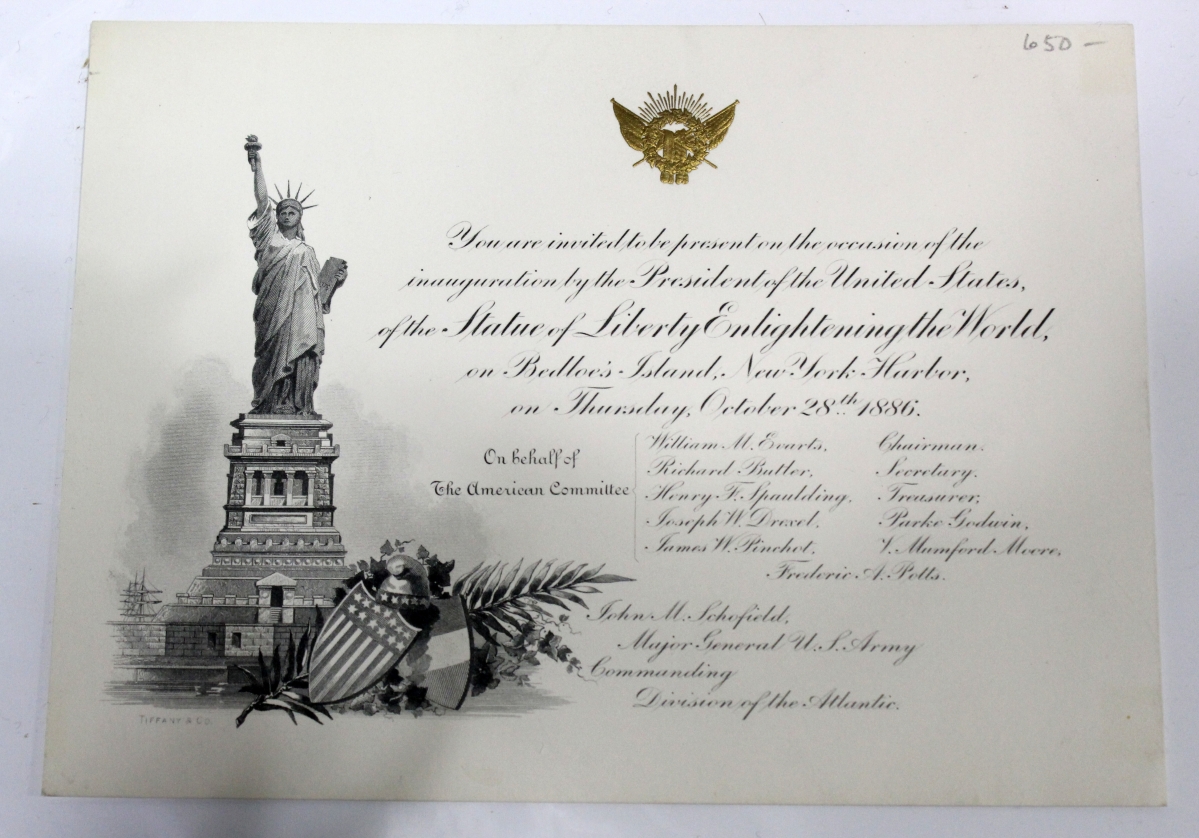 650 —
You are invited to be present on the occasion of the
inauguration by the President of the United States,
of the Statue of Liberty Enlightening the World,
on Bedloe's Island, New York Harbor,
on Thursday, October 28th 1886.
On behalf of
The American Committee
William M. Evarts, Chairman.
Richard Butler, Secretary.
Henry F. Spaulding, Treasurer,
Joseph W. Drexel, Parke Godwin,
James W. Pinchot, V. Mumford Moore,
Frederic A. Potts.
John M. Schofield,
Major General U.S. Army
Commanding
Division of the Atlantic.
TIFFANY & CO.